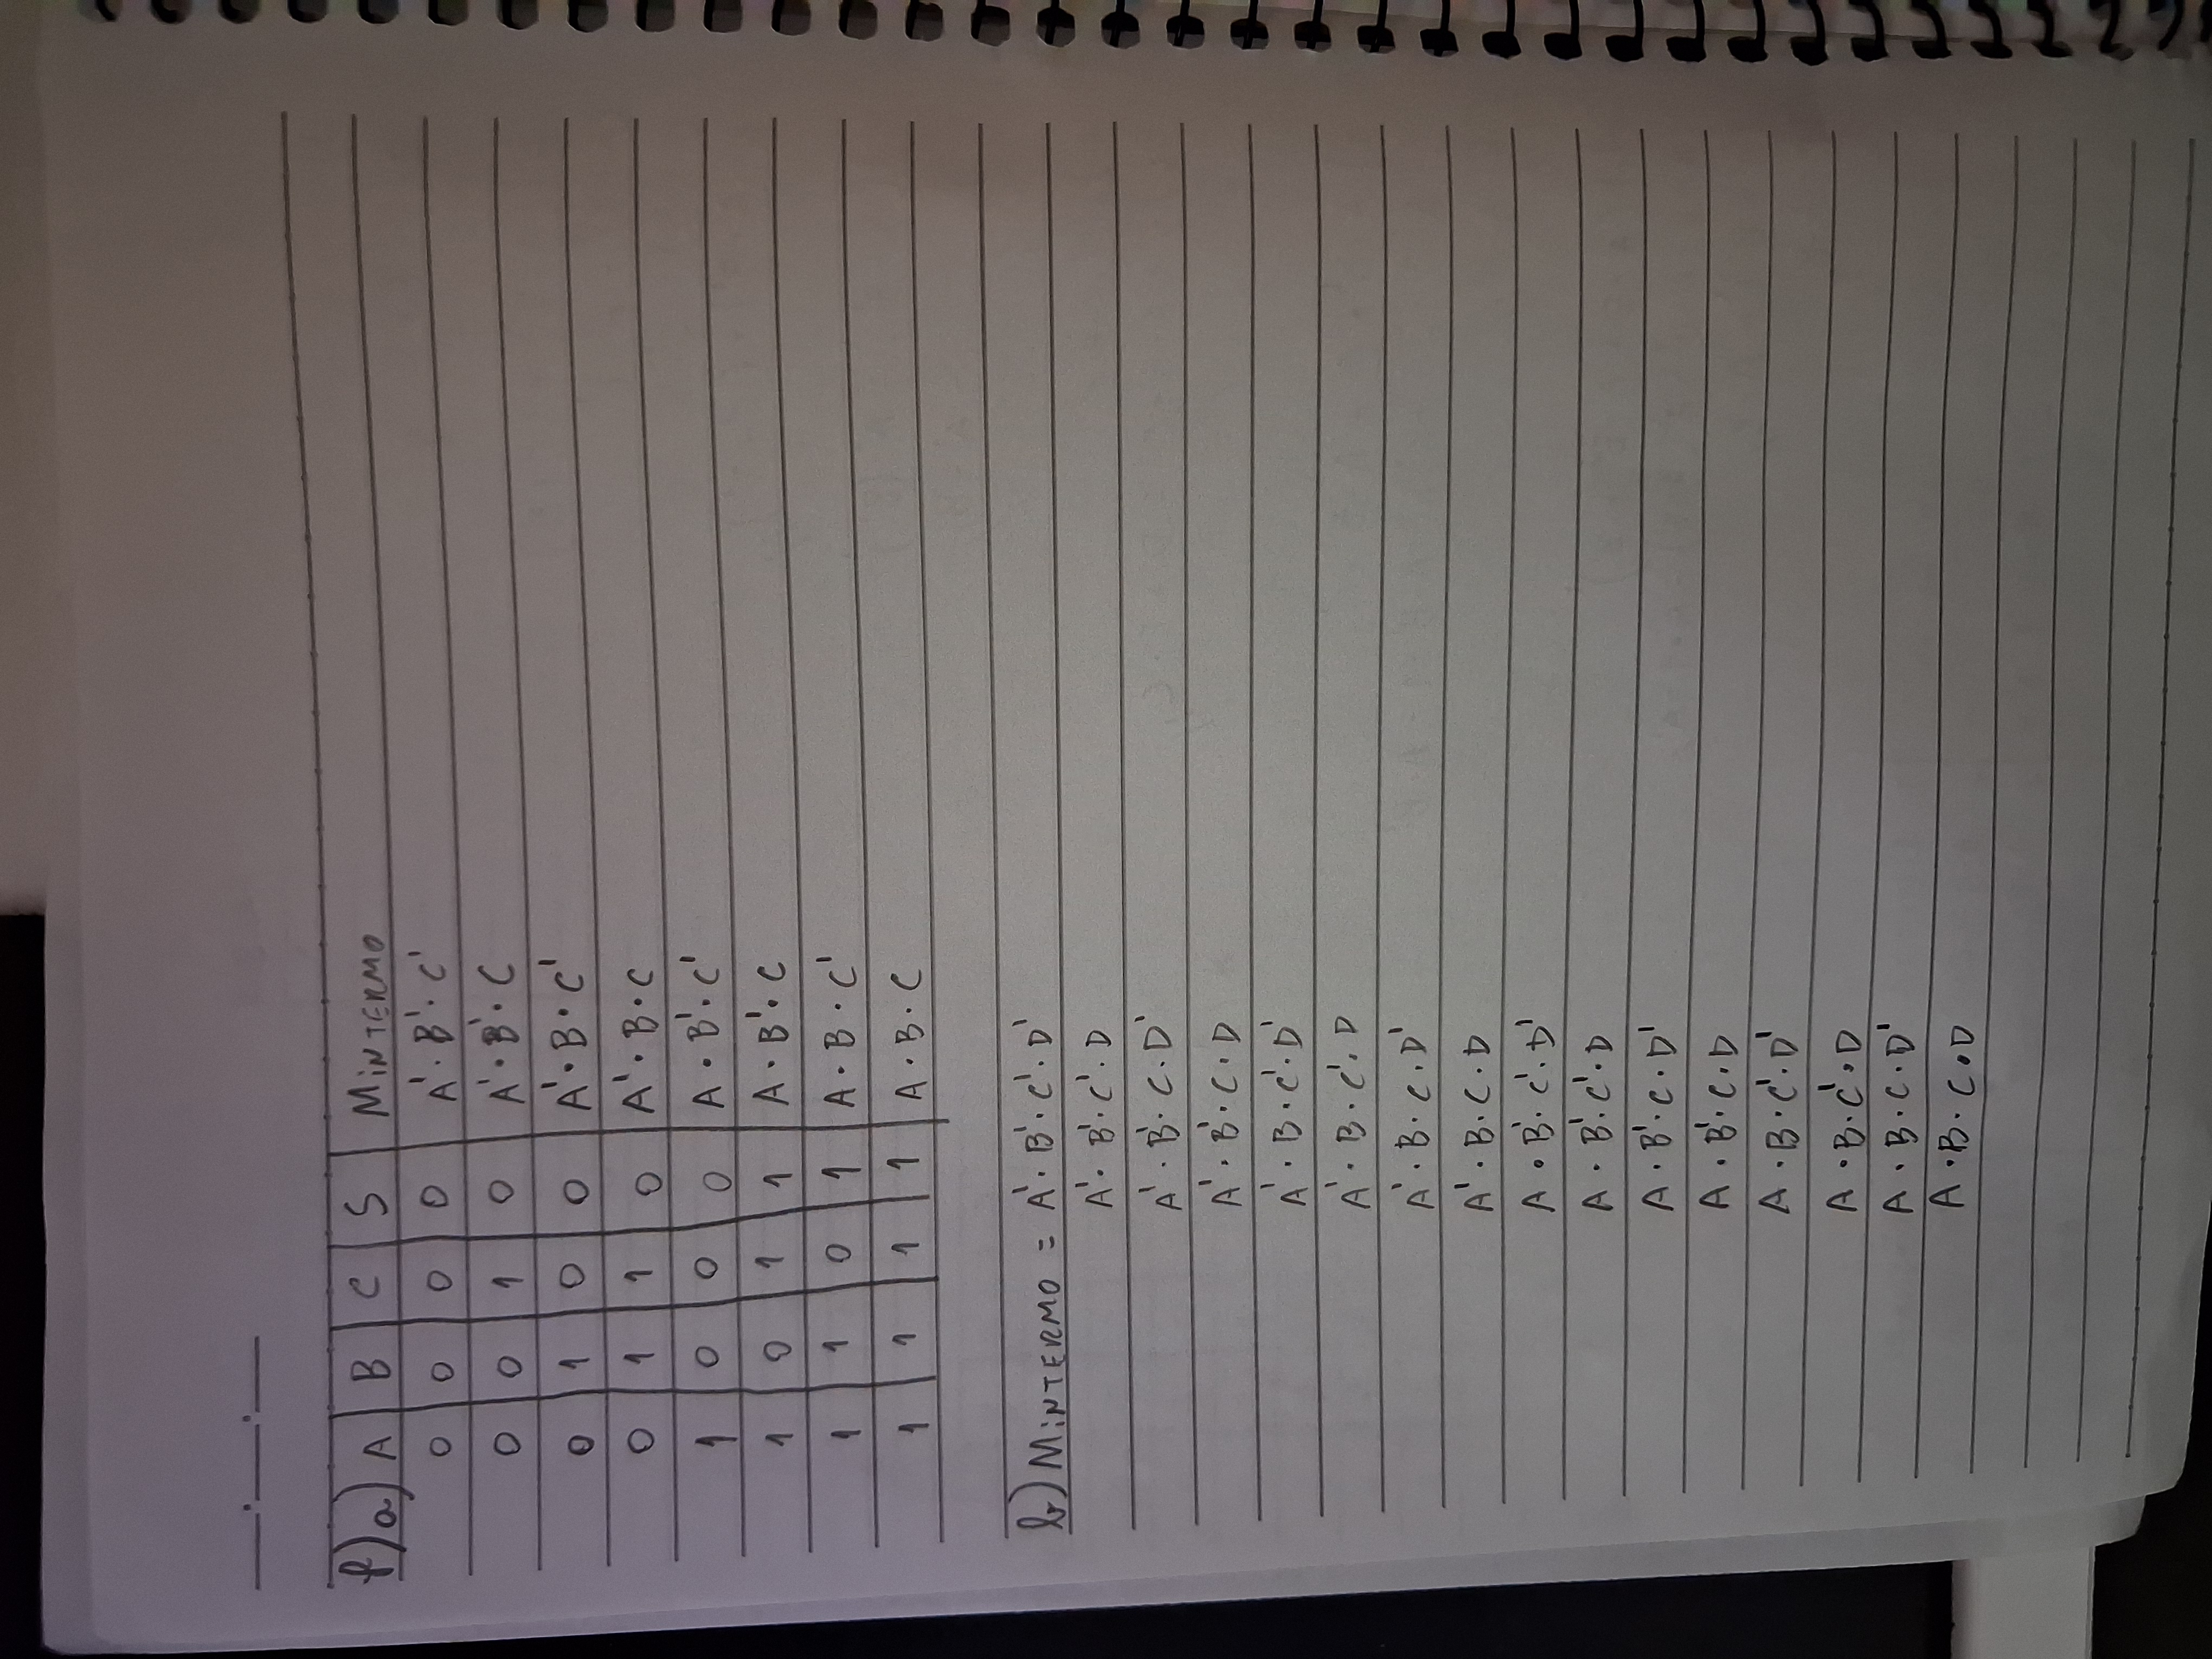 f) a) A B C S MINTERMO
0 0 0 0 A'·B'·C'
0 0 1 0 A'·B'·C
0 1 0 0 A'·B·C'
0 1 1 0 A'·B·C
1 0 0 0 A·B'·C'
1 0 1 1 A·B'·C
1 1 0 1 A·B·C'
1 1 1 1 A·B·C
b) MINTERMO = A'·B'·C'·D'
A'·B'·C'·D
A'·B'·C·D'
A'·B'·C·D
A'·B·C'·D'
A'·B·C'·D
A'·B·C·D'
A'·B·C·D
A·B'·C'·D'
A·B'·C'·D
A·B'·C·D'
A·B'·C·D
A·B·C'·D'
A·B·C'·D
A·B·C·D'
A·B·C·D